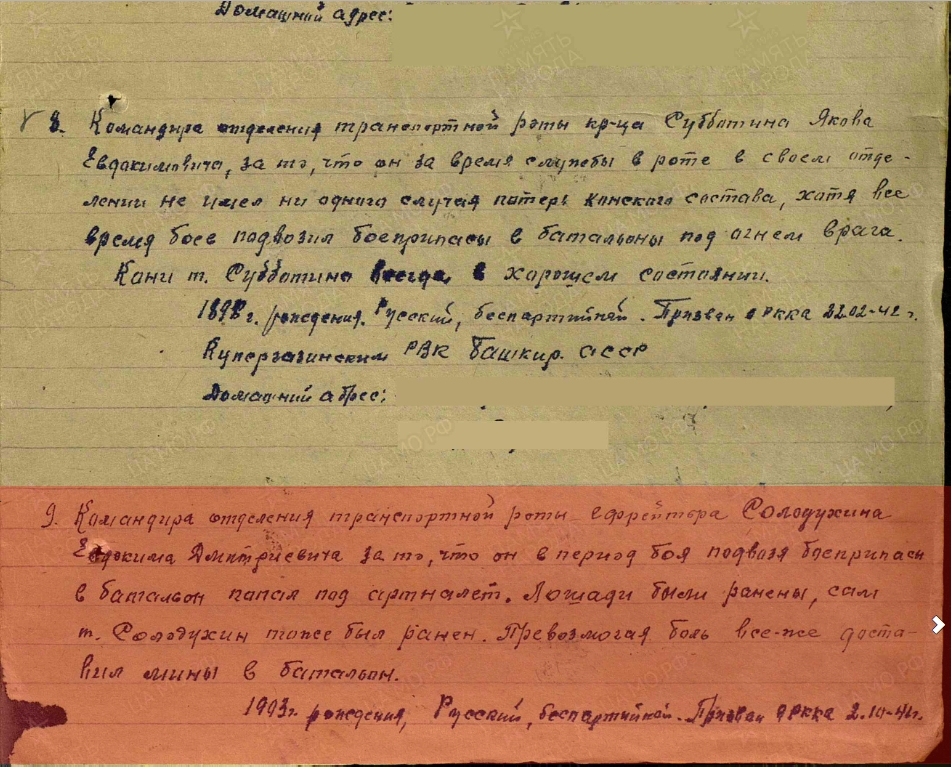 Домашний адрес:
8. Командира отделения транспортной роты кр-ца Субботина Якова
Евдокимовича, за то, что он за время службы в роте в своем отде-
лении не имел ни одного случая потерь конского состава, хотя все
время боев подвозил боеприпасы в батальоны под огнем врага.
Кони т. Субботина всегда в хорошем состоянии.
1898 г. рождения. Русский, беспартийный. Призван в РККА 22.02-42 г.
РВК Башкир. АССР
Домашний адрес:
9. Командира отделения транспортной роты ефрейтора Солодухина
Евдокима Дмитриевича за то, что он в период боя подвозя боеприпасы
в батальон попал под артналет. Лошади были ранены, сам
т. Солодухин тоже был ранен. Превозмогая боль все-же доста-
вил мины в батальон.
1903г. рождения, Русский, беспартийной. Призван в РККА 2.10-41г.
ПАМЯТЬ НАРОДА
ЦАМО.РФ